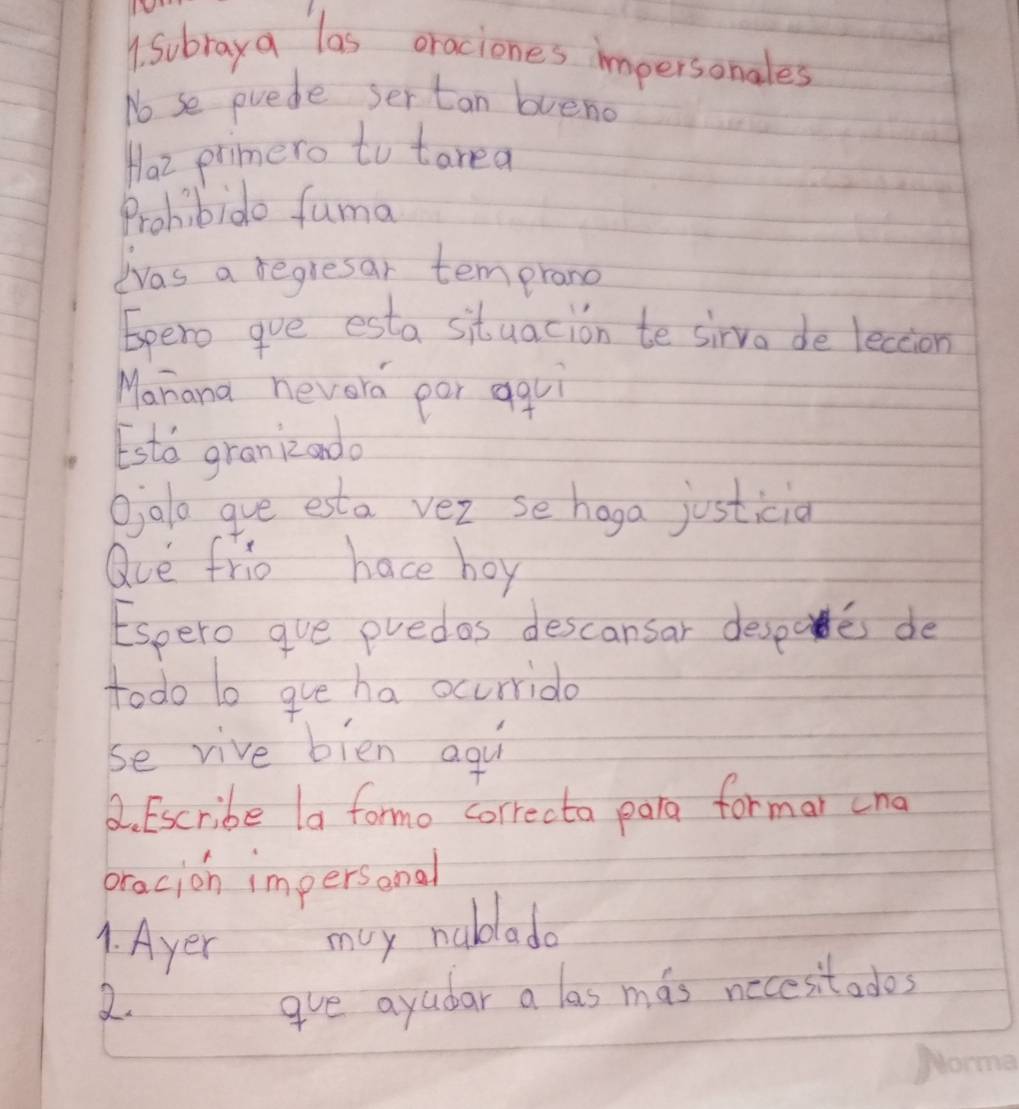 1. Subraya las oraciones impersonales
No se puede ser tan bueno
Haz primero tu tarea
Prohibido fuma
¿vas a regresar temprano
Espero que esta situación te sirva de leccion
Mañana nevará por aquí
Está granizando
Ojala que esta vez se haga justicia
Qué frío hace hoy
Espero que puedas descansar después de
todo lo que ha ocurrido
se vive bien aquí
2. Escribe la forma correcta para formar una
oración impersonal
1. Ayer muy nublado
2. que ayudar a las más necesitados
Norma